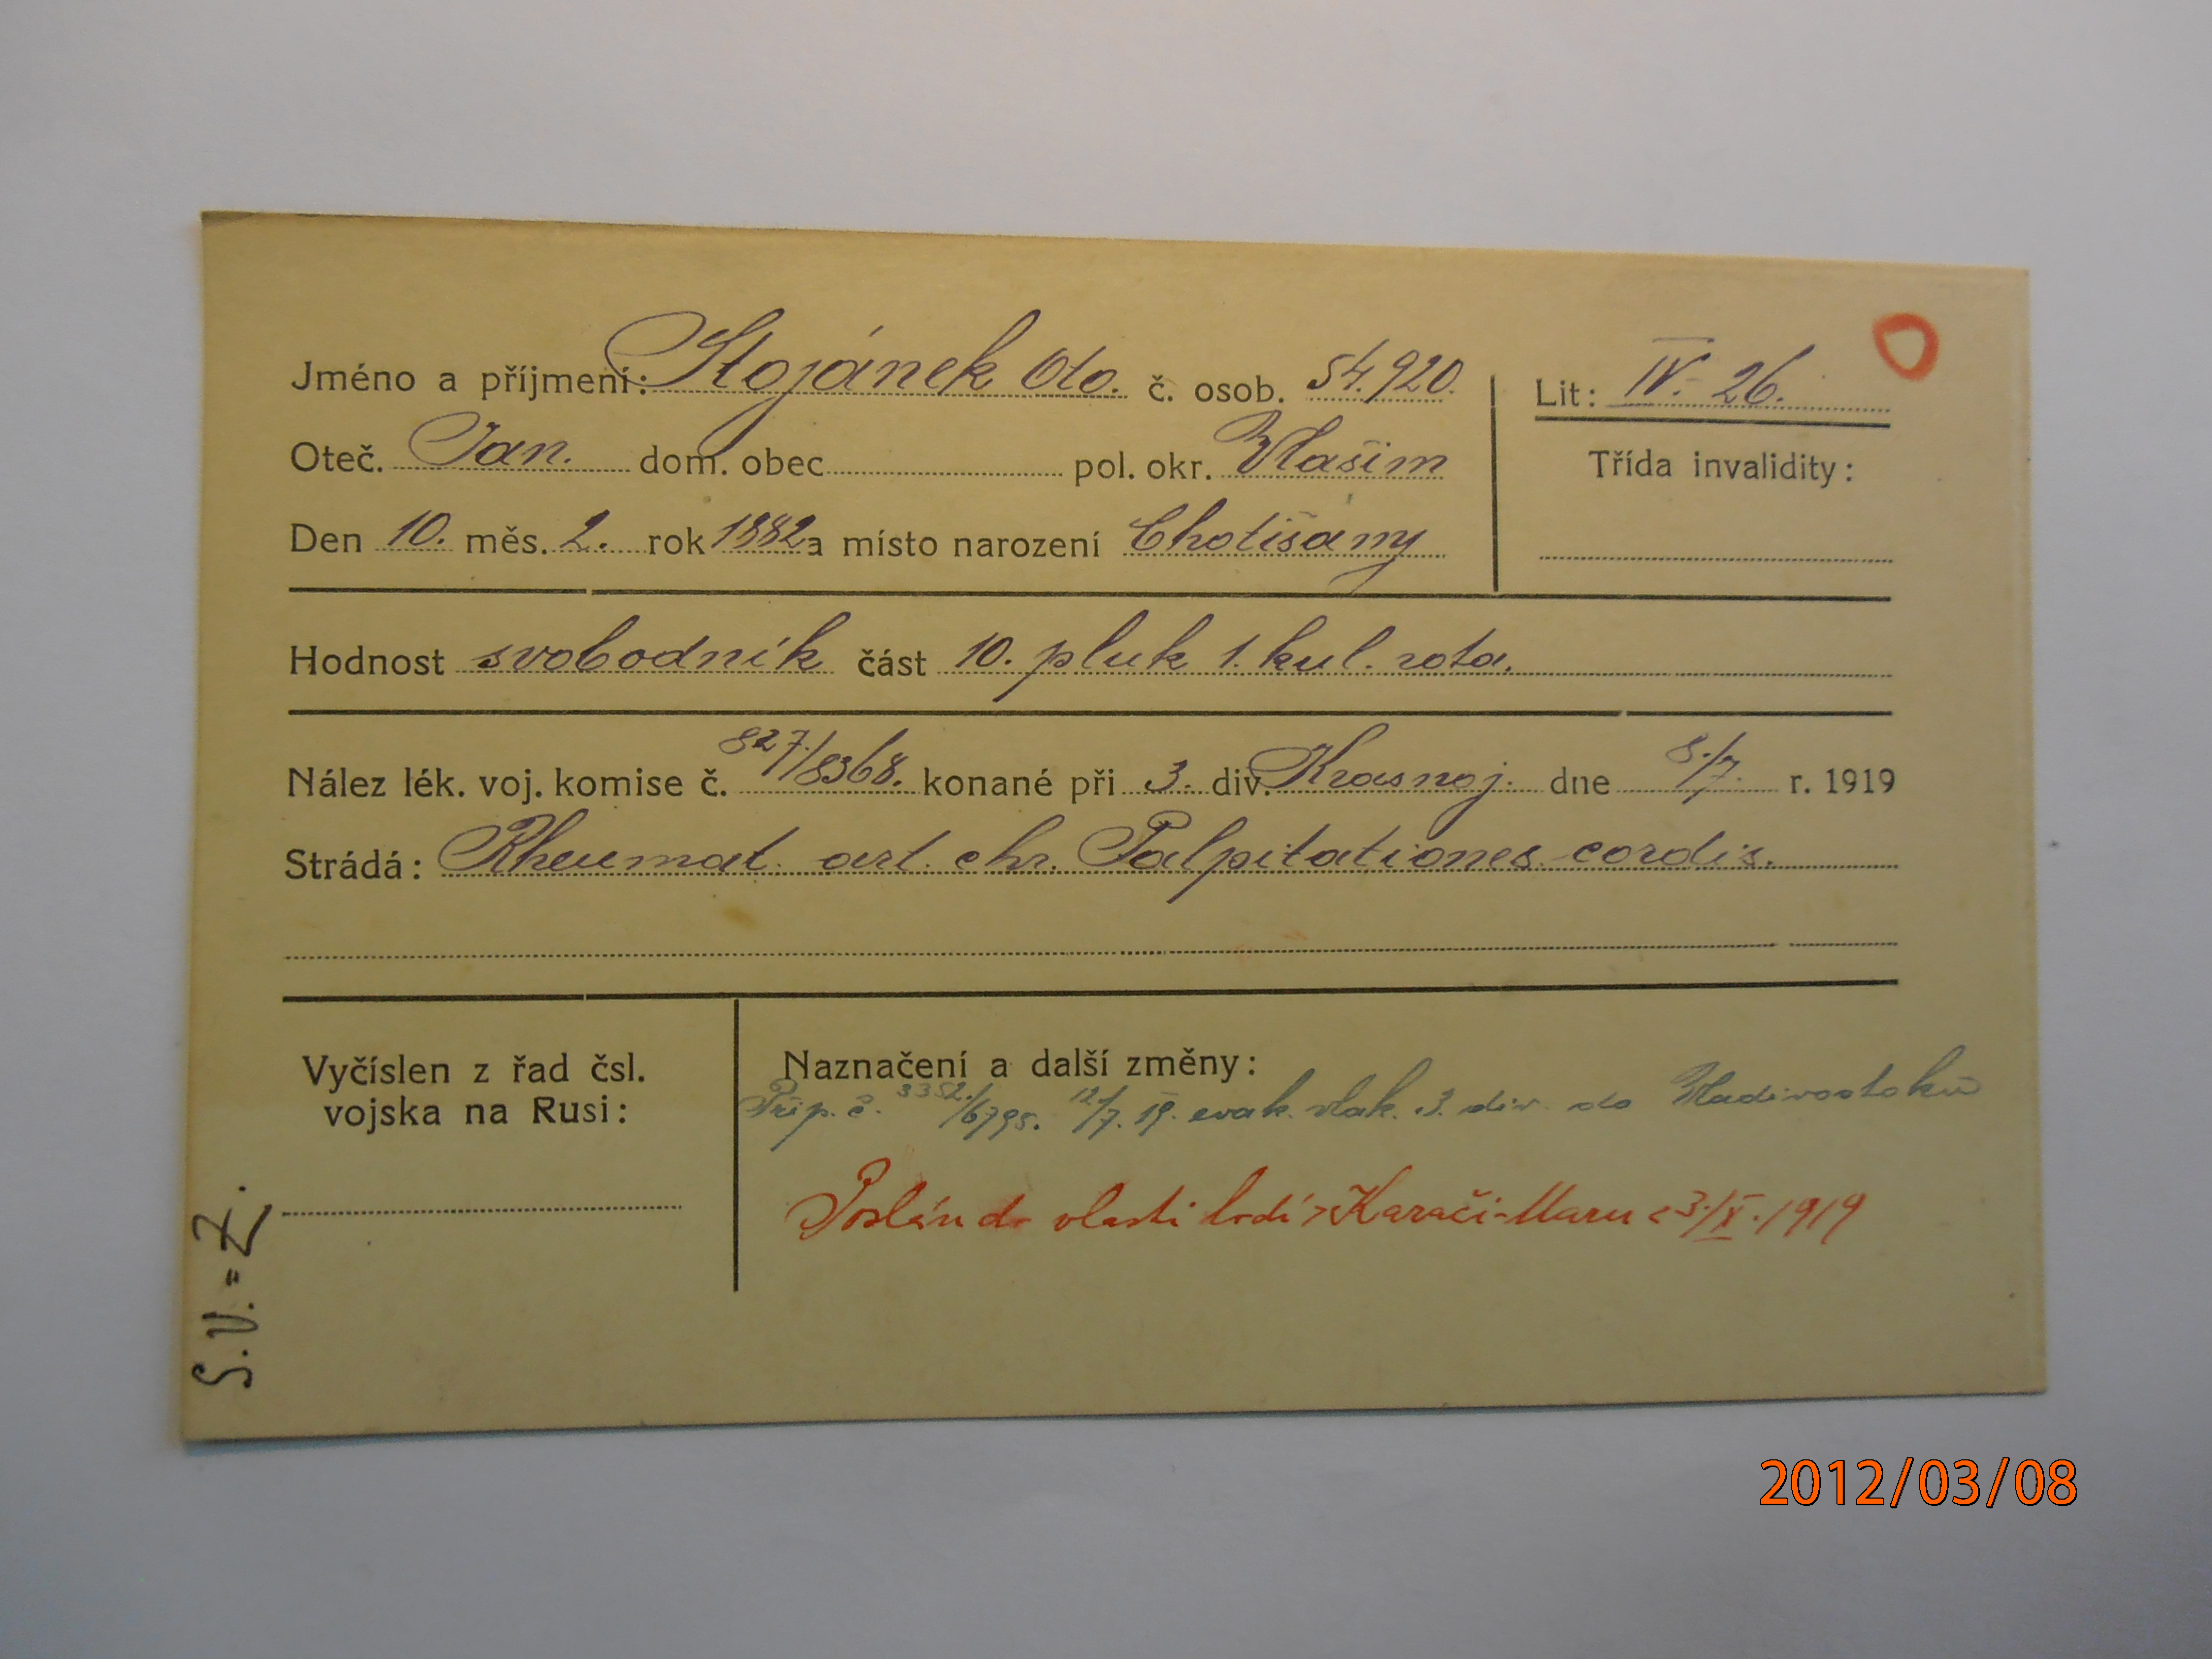 Jméno a příjmení: Stojánek Old. č. osob. 54.920. Lit: IV.- 26.
Oteč. Jan. dom. obec pol. okr. Vlašim Třída invalidity:
Den 10. měs. 2. rok 1882 a místo narození Chotišamy
Hodnost svobodník část 10. pluk 1. kul. rota.
Nález lék. voj. komise č. 827./8368. konané při 3. div. Krasnoj. dne 8./7. r. 1919
Strádá: Rheumat. art. chr. Palpitationes cordis.
Vyčíslen z řad čsl.
vojska na Rusi:
Naznačení a další změny:
Přip. č. 3352./6795. 12/7. 19. evak. vlak. 3. div. do Vladivostoku
Poslán do vlasti lodí >Karači-Maru< 3./X. 1919
S.V. = Z.
2012/03/08